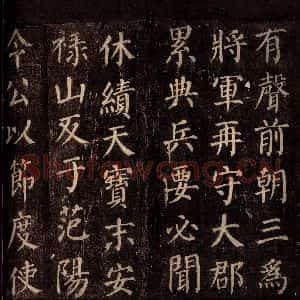 有聲前朝三爲
將軍再守大郡
累典兵要必聞
休績天寶末安
祿山反于范陽
令公以節度使